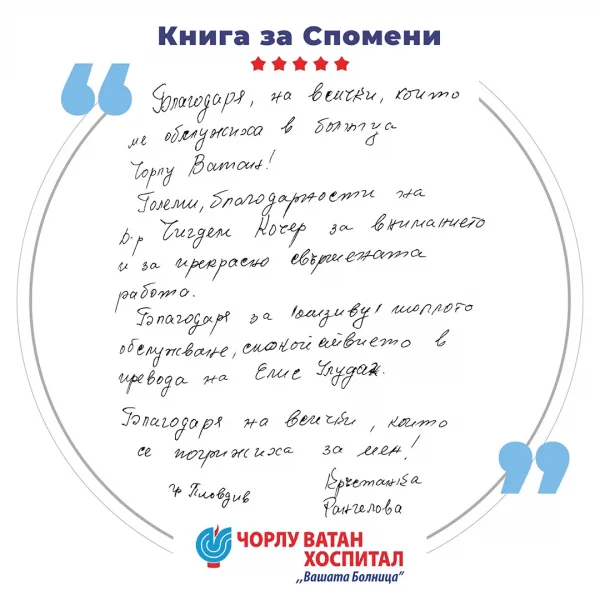 Книга за Спомени
Благодаря, на всички, които
ме обслужиха в болница
Чорлу Ватан!
Големи, благодарности на
д-р Чигдем Кочер за вниманието
и за прекрасно свършената
работа.
Благодаря за топлото
обслужване, спокойствието в
превода на Елис Улудаж.
Благодаря на всички, които
се погрижиха за мен!
гр Пловдив
Кръстанка
Рангелова
ЧОРЛУ ВАТАН
ХОСПИТАЛ
,,Вашата Болница"